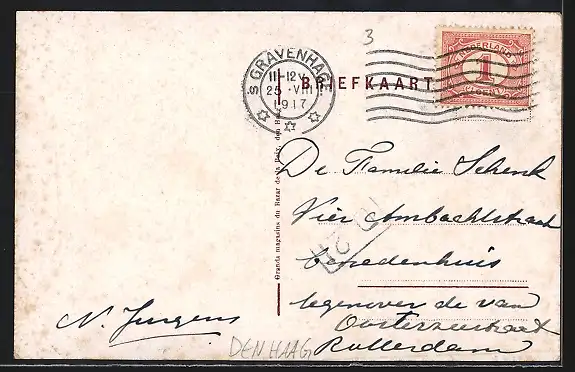 3
'S GRAVENHAGE
11-12V
25 VIII
1917
BRIEFKAART
NEDERLAND
1
CENT
De Familie Schenk
Vier Ambachtstraat
benedenhuis
tegenover de van
Oosterzeestraat
Rotterdam
N. Jurgens
DEN HAAG
Grands magasins du Bazar de la Paix, den Haag